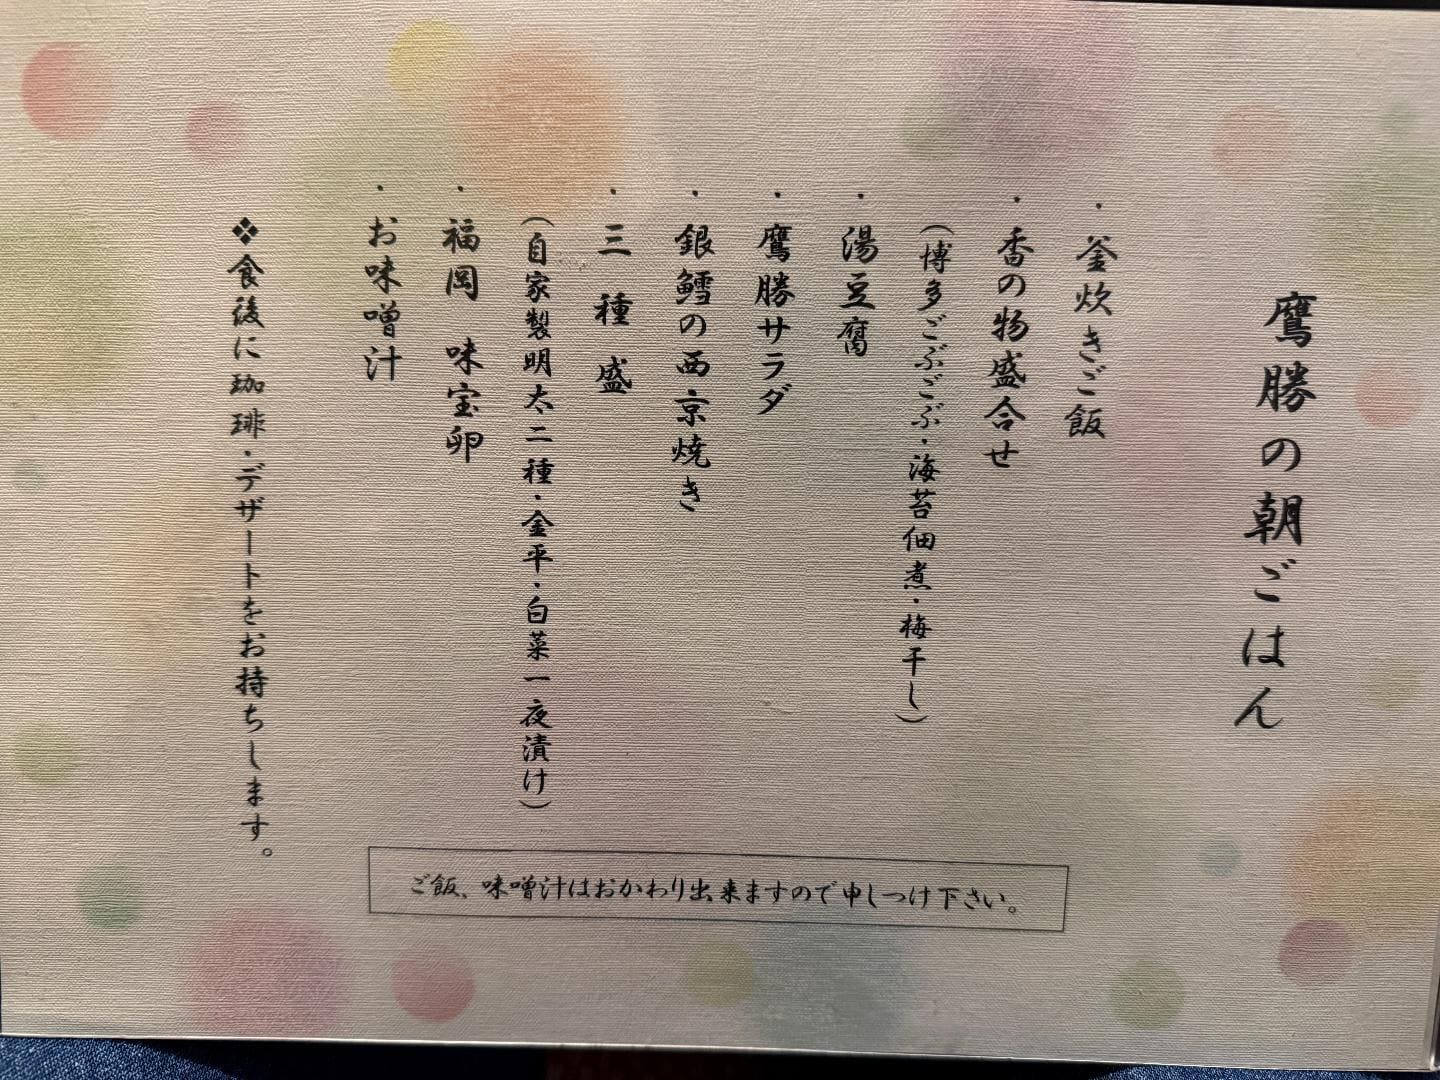 鷹勝の朝ごはん
・釜炊きご飯
・香の物盛合せ
(博多ごぶごぶ・海苔佃煮・梅干し)
・湯豆腐
・鷹勝サラダ
・銀鱈の西京焼き
・三種盛
(自家製明太二種・金平・白菜一夜漬け)
・福岡 味宝卵
・お味噌汁
❖食後に珈琲・デザートをお持ちします。
ご飯、味噌汁はおかわり出来ますので申しつけ下さい。